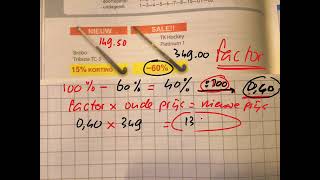 NIEUW
149.50
SALE!!
TK Hockey
Platinum 1
349.00
factor
Brabo
Tribute TC-3
15% KORTING
-60%
100% - 60% = 40% :100 0,40
factor x oude prijs = nieuwe prijs
0,40 x 349 = 13